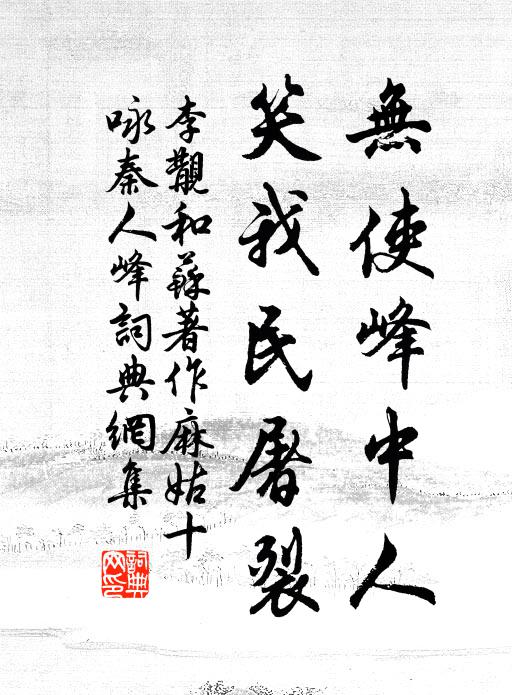 無使峰中人
笑我民屠裂
李覯和蘇著作麻姑十
咏秦人峰詞典網集
詞典網印